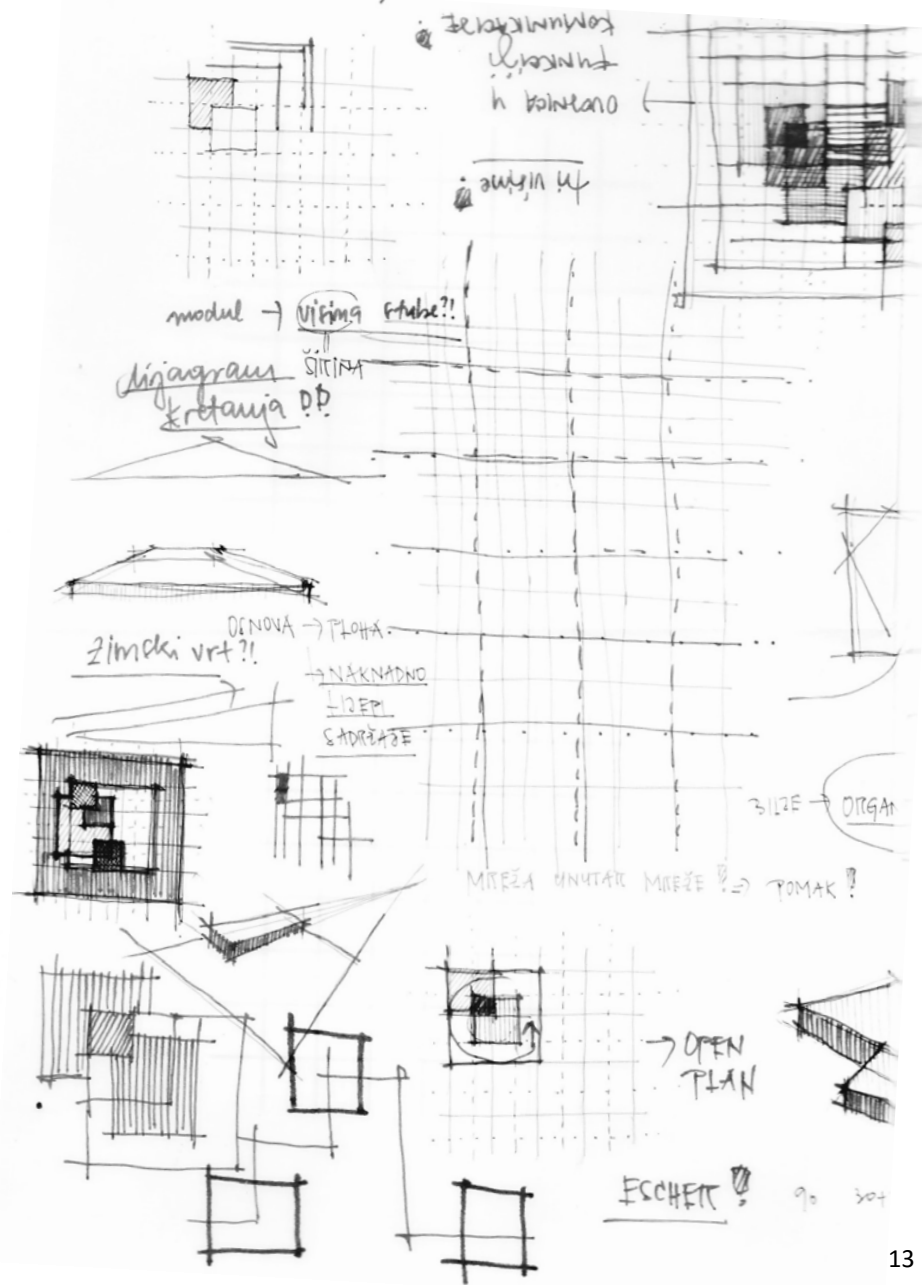 KOMUNIKACIJE
FUNKCIJI
OVOJNICA U
tri visine
modul → visina stube?!
ŠIRINA
dijagram
kretanja
OSNOVA → PLOHA
Zimski vrt?!
→ NAKNADNO
SADRŽAJE
ORGAN
MREŽA UNUTAR MREŽE! → POMAK!
→ OPEN
PLAN
ESCHER!
90 30+
13